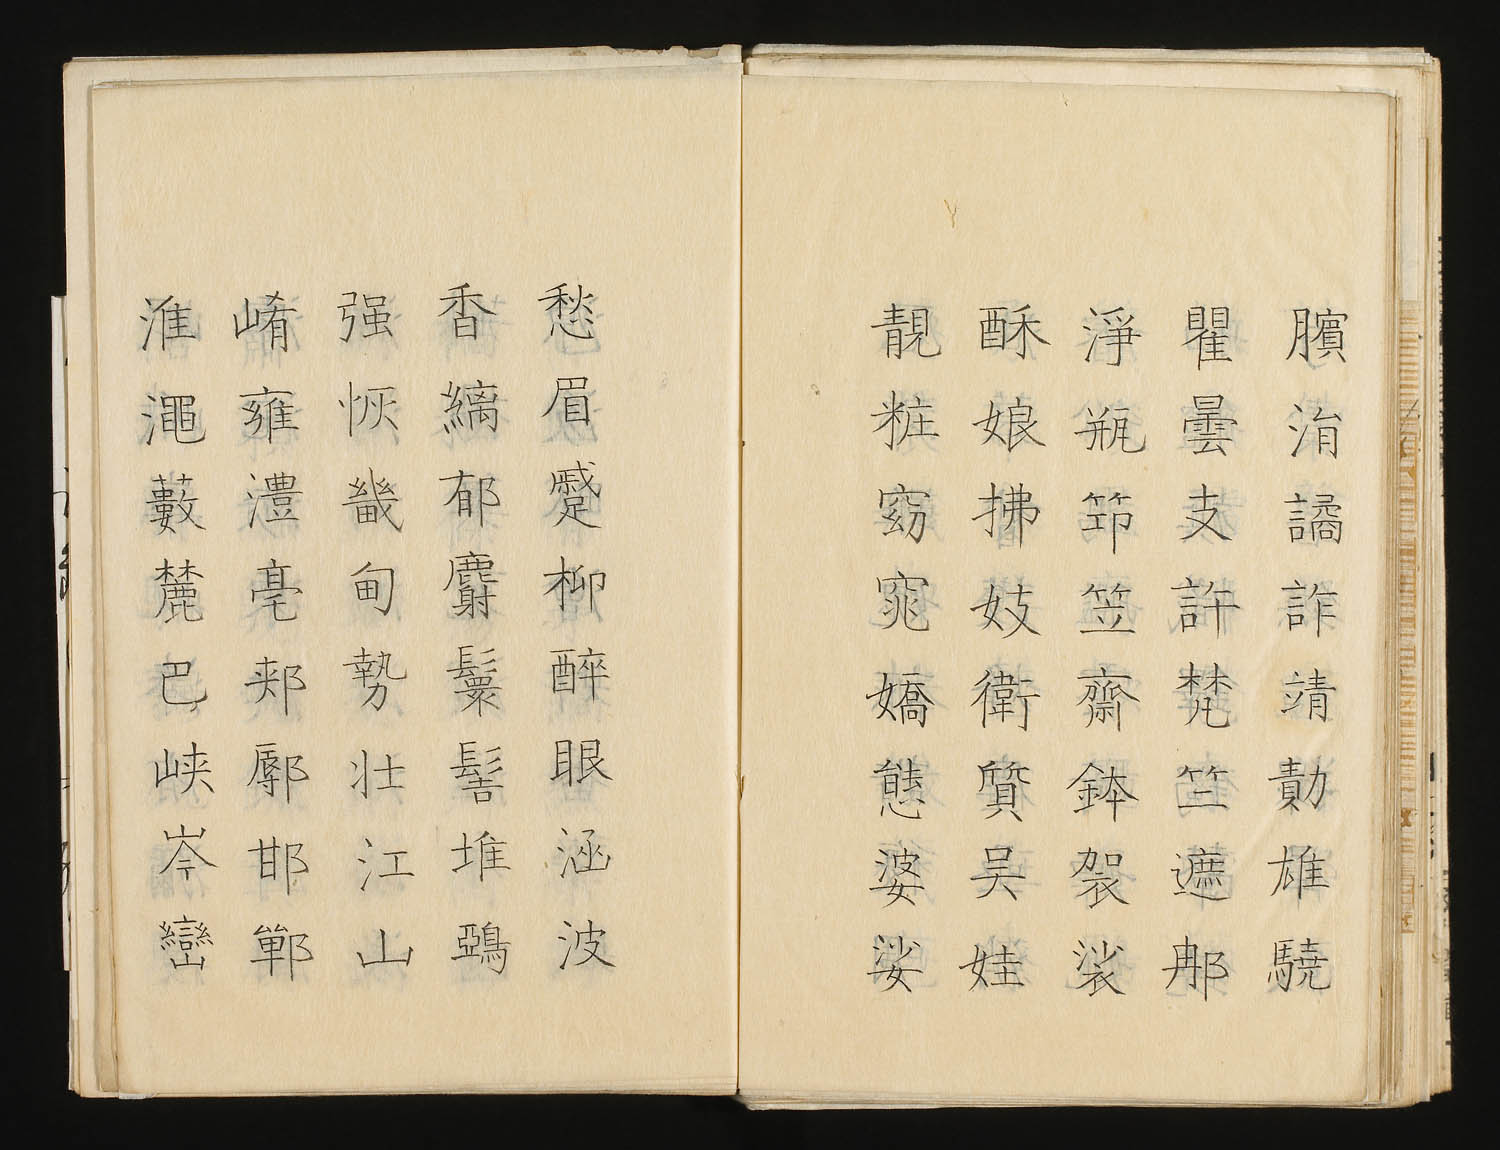 臏涓譎詐靖勣雄驍
瞿曇支許梵竺遮那
淨瓶笻笠齋鉢袈裟
酥娘拂妓衛質吴娃
靚粧窈窕嬌態婆娑
愁眉蹙柳醉眼涵波
香縭郁麝鬟髻堆鵶
强恢畿甸勢壯江山
崤雍澧亳郟鄏邯鄲
淮澠藪麓巴峡岑巒